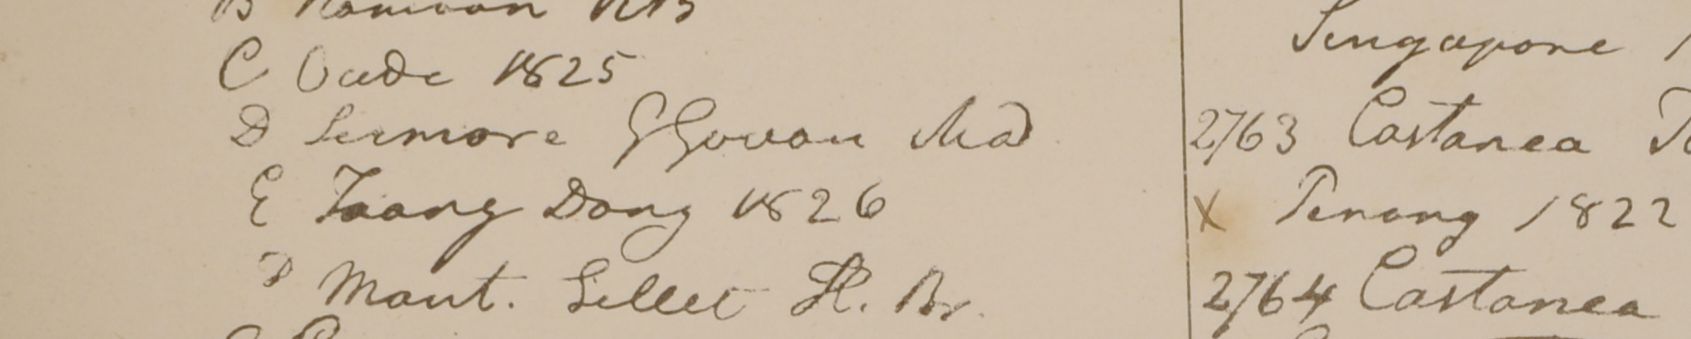 B Kamoon RB
C Oude 1825
D Sirmore GGovan Mad
E Taong Dong 1826
F Mont. Sillet H. Br.
Singapore 1
2763 Castanea
X Penang 1822
2764 Castanea